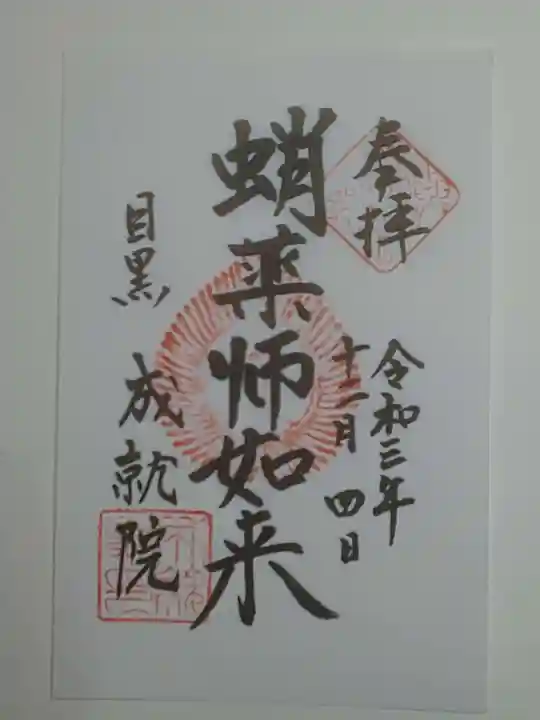 奉拝
令和三年
十二月四日
蛸薬師如来
目黒
成就院